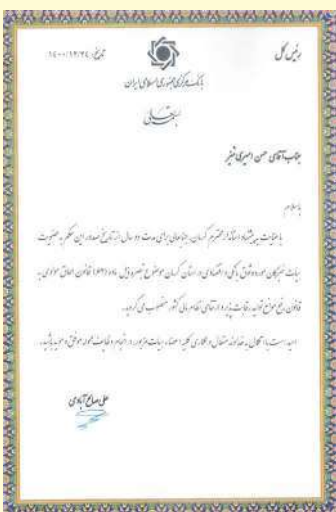 رئیس کل
تاریخ: ۱۴۰۰/۱۲/۲۴
بانک مرکزی جمهوری اسلامی ایران
بسمه تعالی
جناب آقای حسن امیری خبیر
باسلام
با عنایت به پیشنهاد استاندار محترم کرمان، جنابعالی برای مدت دو سال از تاریخ صدور این حکم به عضویت
هیات خبرگان موردوثوق بانکی و اقتصادی در استان کرمان موضوع تبصره ذیل ماده (۶۲) قانون الحاق موادی به
قانون رفع موانع تولید رقابت پذیر و ارتقای نظام مالی کشور منصوب می گردید.
امید است با اتکال به خداوند متعال و همکاری کلیه اعضاء هیات مزبور، در انجام وظایف محوله موفق و موید باشید.
علی صالح آبادی